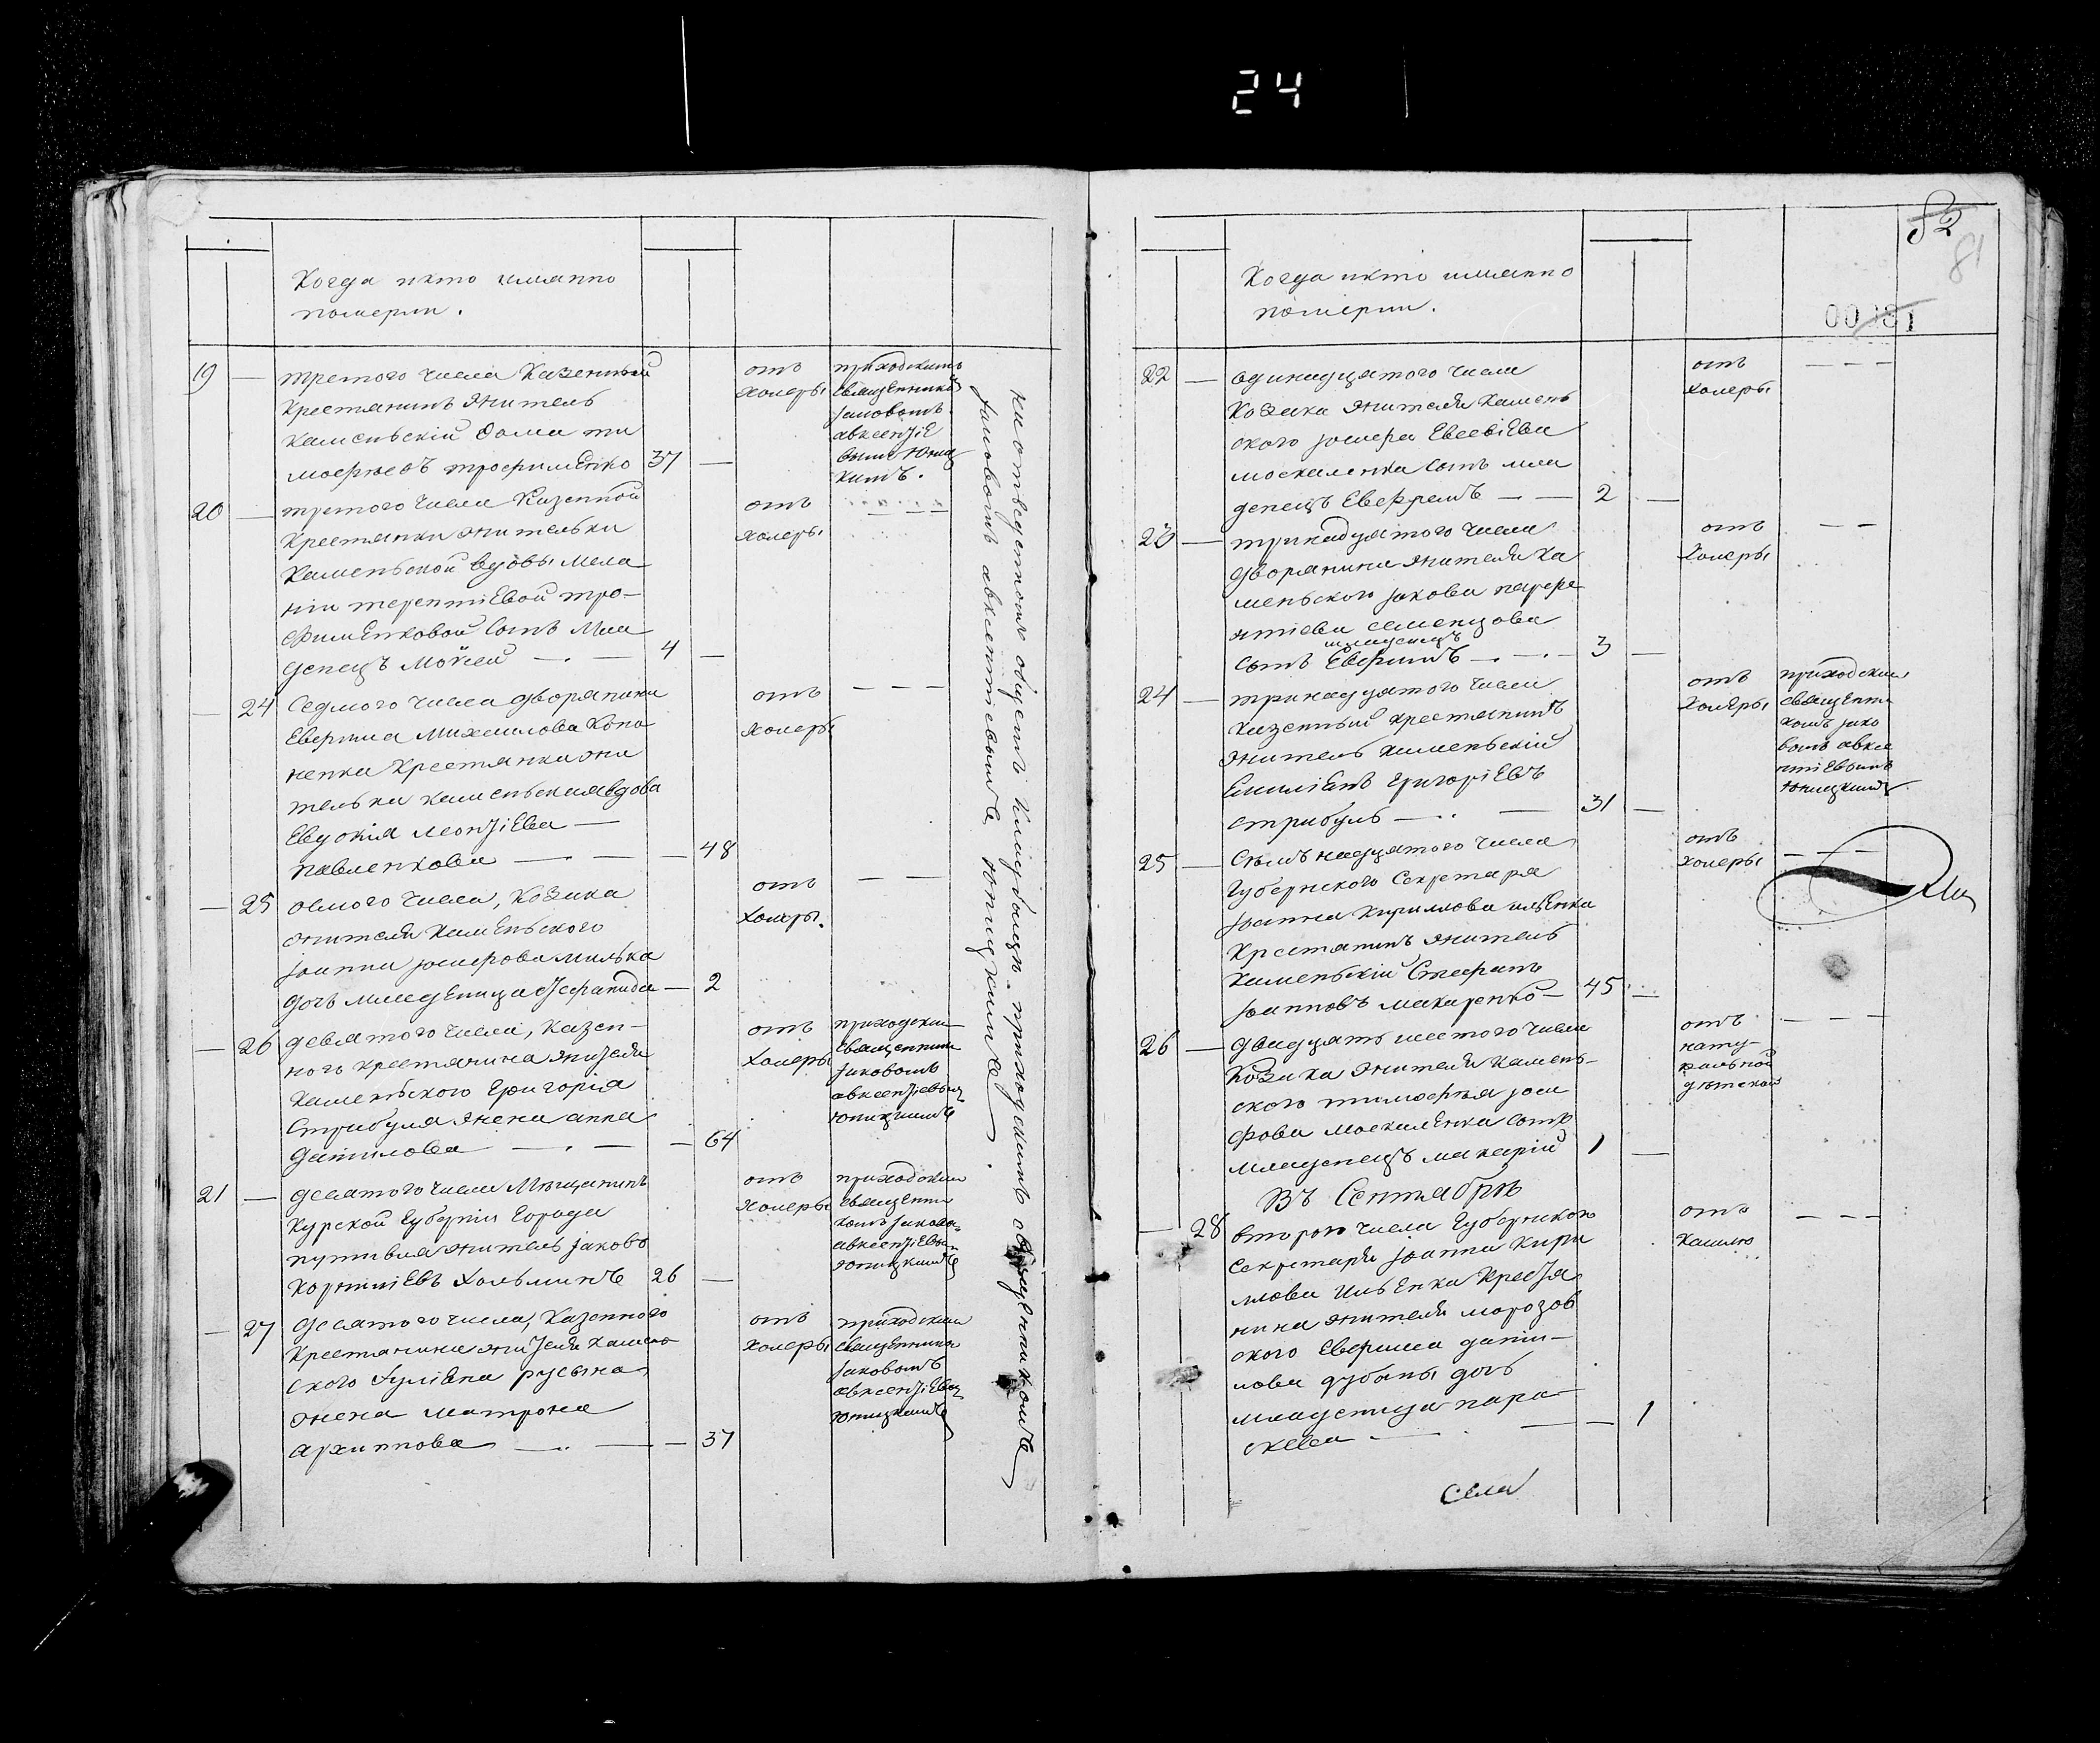 24
Когда и кто имянно
померли.
19 — третого числа казенный
крестянинъ житель
каменьскій Фома ти
мофѣевъ трофименко 37 —
отъ
холеры
приходскимъ
священником
јаковомъ
авксентіе
вымъ Юниц
кимъ.
20 — третого числа казенной
крестянки жительки
каменьской вдовы мела
ніи терентіевой тро-
фименковой сынъ мла
денецъ Моисей — . — 4 —
отъ
холеры
— — —
— 24 седмого числа дворянина
Евфима Михаилова Коно
ненка крестянка жи
телька каменьская вдова
Евдокія леонтіева —
павленкова — . — — 48
отъ
холеры
— — —
— 25 осмого числа, козака
жителя каменьского
јоанна јосифова милька
дочь младеница Стефанида — 2
отъ
холеры.
— —
— 26 девятого числа, казен-
ного крестянина жителя
каменьского Григорія
Стрибуля жена анна
данілова — . — — 64
отъ
холеры
приходским
священником
јаковомъ
авксентіевым
Юницкимъ
21 — десятого числа Мѣщанинъ
курской губерніи города
путивля житель јаковъ
корниліевъ хольминъ 26 —
отъ
холеры
приходским
священни
комъ јаково-
авксентіевы-
Юницкимъ
— 27 десятого числа, казенного
крестянина жителя камень
ского Іуліана русына
жена матрона
архипова — . — — 37
отъ
холеры
приходским
священником
јаковомъ
авксентіевы
Юницкимъ
на отведенномъ общемъ кладбищи. приходскимъ священникомъ
јаковомъ авксентіевымъ Юницкимъ.
82
81
00081
Когда и кто имянно
померли.
22 — одинадцятого числа
козака жителя камень
ского јосифа Евсевіева
москаленка сынъ мла
денецъ Евфремъ — — 2 —
отъ
холеры
— — —
23 — тринадцятого числа
дворянина жителя ка
меньского јакова
семенцова
младенецъ
сынъ Евфимъ — . — 3 —
отъ
холеры
— —
24 — тринадцятого числа
казенный крестянинъ
житель каменьскій
Емиліанъ григоріевъ
стрибуль — . . — 31 —
отъ
холеры
приходским
священни
комъ јако
вомъ авксе
нтіевымъ
Юницкимъ.
25 — Семънадцятого числа
Губернского Секретаря
јоанна кириллова ильенка
крестянинъ житель
каменьскій Стефанъ
јоанновъ макаренко — 45 —
отъ
холеры
— — —
26 — двадцять шестого числа
козака жителя камень-
ского тимофѣя јоси
фова москаленка сынъ
младенецъ макарій 1 —
отъ
нату-
ральной
дѣтской
— — —
Въ Сентябрѣ
— 28 второго числа Губернского
секретаря јоанна кири
ллова ильенка крестя
нина жителя морозов
ского Евфима дани-
лова дубины дочь
младеница пара
скева — . — — 1
отъ
кашлю
— — —
Села